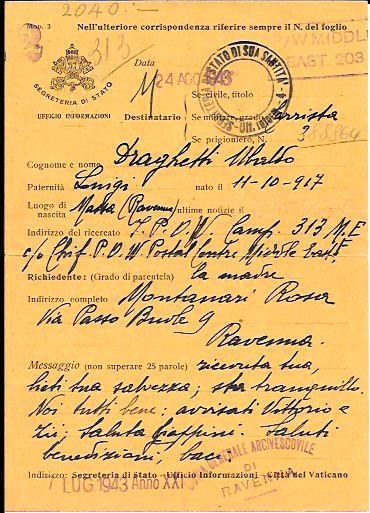 2040:-
Mod. 3 Nell'ulteriore corrispondenza riferire sempre il N. del foglio
313
P/W MIDDLE
EAST 203
SEGRETERIA DI STATO
UFFICIO INFORMAZIONI
Data
24 AGO 1943
STATO DI SUA SANTITÀ
Se civile, titolo
Destinatario: Se militare, grado
Se prigioniero, N.
Cognome e nome Draghetti Ubaldo
Paternità Luigi nato il 11-10-917
Luogo di nascita Massa (Ravenna) ultime notizie il
Indirizzo del ricercato I.P.O.W. Camp. 313 M.E
c/o Chif P.O.W Postal Centre Middle East
Richiedente: (Grado di parentela) la madre
Indirizzo completo Montanari Rosa
Via Passo Buole 9
Ravenna.
Messaggio (non superare 25 parole) ricevuta tua,
lieti tua salvezza; sta tranquillo.
Noi tutti bene: avvisati Vittorio e
Zii. Saluta Giappini. Saluti
benedizioni, baci
CURIA GENERALE ARCIVESCOVILE
DI
RAVENNA
Indirizzo: Segreteria di Stato - Ufficio Informazioni - Città del Vaticano
7 LUG 1943 Anno XXI